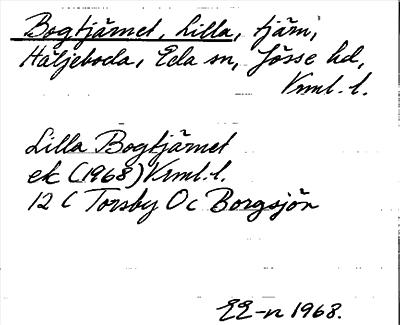 Bogtjärnet, Lilla, tjärn,
Häljeboda, Eda sn, Jösse hd,
Vrml. l.
Lilla Bogtjärnet
ek (1968) Vrml. l.
12 C Torsby Oc Borgsjön
EE-n 1968.